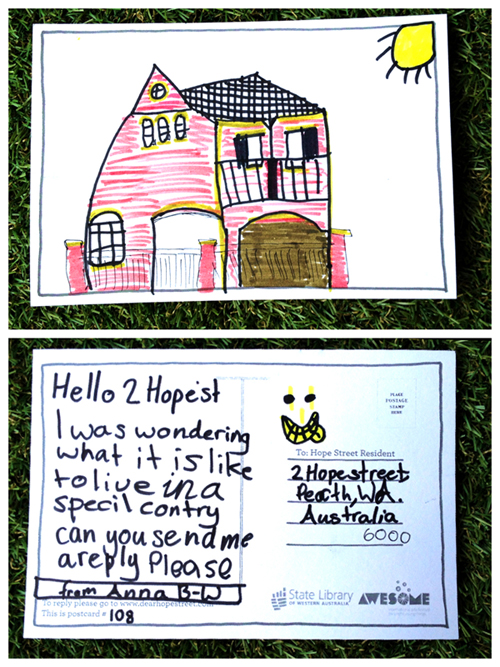 Hello 2 Hope st
I was wondering
what it is like
to live in a
specil contry
can you send me
a reply Please
from Anna B-W
To reply please go to www.dearhopestreet.com
This is postcard # 108
PLACE
POSTAGE
STAMP
HERE
To: Hope Street Resident
2 Hopestreet
Pearth, WA.
Australia
6000
State Library
OF WESTERN AUSTRALIA
AWESOME